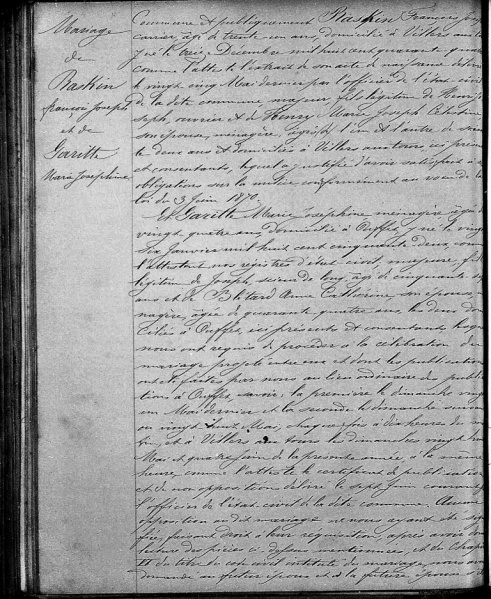 Mariage
de
Raskin
françois Joseph
et de
Garitte
Marie Josephine
Commune et publiquement Raskin François
carrier, âgé de trente un ans, domicilié à Villers aux tours
y né le treize Décembre mil huit cent quarante quatre
comme l'atteste l'extrait de son acte de naissance délivré
le vingt cinq Mai dernier par l'officier de l'état civil
de la dite commune, majeur, fils légitime de Henri
seph, ouvrier et de Henry Marie Joseph Célestine
son épouse, ménagère, âgés l'un et l'autre de soixan
te deux ans et domiciliés à Villers aux tours, ici présents
et consentants, lequel a justifié d'avoir satisfait à ses
obligations sur la milice conformément au de la
loi du 3 Juin 1870.
Et Garitte Marie Josephine ménagère âgée de
vingt quatre ans domiciliée à Ouffet y née le vingt
six Janvier mil huit cent cinquante deux, comme
l'attestent nos registres d'état civil, majeure, fille
légitime de Joseph, scieur de long, âgé de cinquante
ans et de Blétard Anne Catherine, son épouse
nagère, âgée de quarante quatre ans, les deux domi
ciliés à Ouffet, ici présents et consentants, lesquels
nous ont requis de procéder à la célébration du
mariage projeté entre eux et dont les publications
ont été faites par nous au lieu ordinaire des publica
tions à Ouffet, savoir: la première le dimanche vingt
un Mai dernier et la seconde le dimanche suivant
ou vingt huit Mai, chaque fois à dix heures du
tin et à Villers aux tours les dimanches vingt huit
Mai et quatre Juin de la présente année à la même
heure, comme l'atteste le certificat de publication
et de non opposition délivré le sept Juin courant
l'officier de l'état civil de la dite commune. Aucune
opposition au dit mariage ne nous ayant été signi
fiée, faisant droit à leur réquisition, après avoir donné
lecture des pièces ci-dessus mentionnées, et du Chapitre
VI du titre du code civil intitulé du mariage, nous avons
demandé au futur époux et à la future épouse